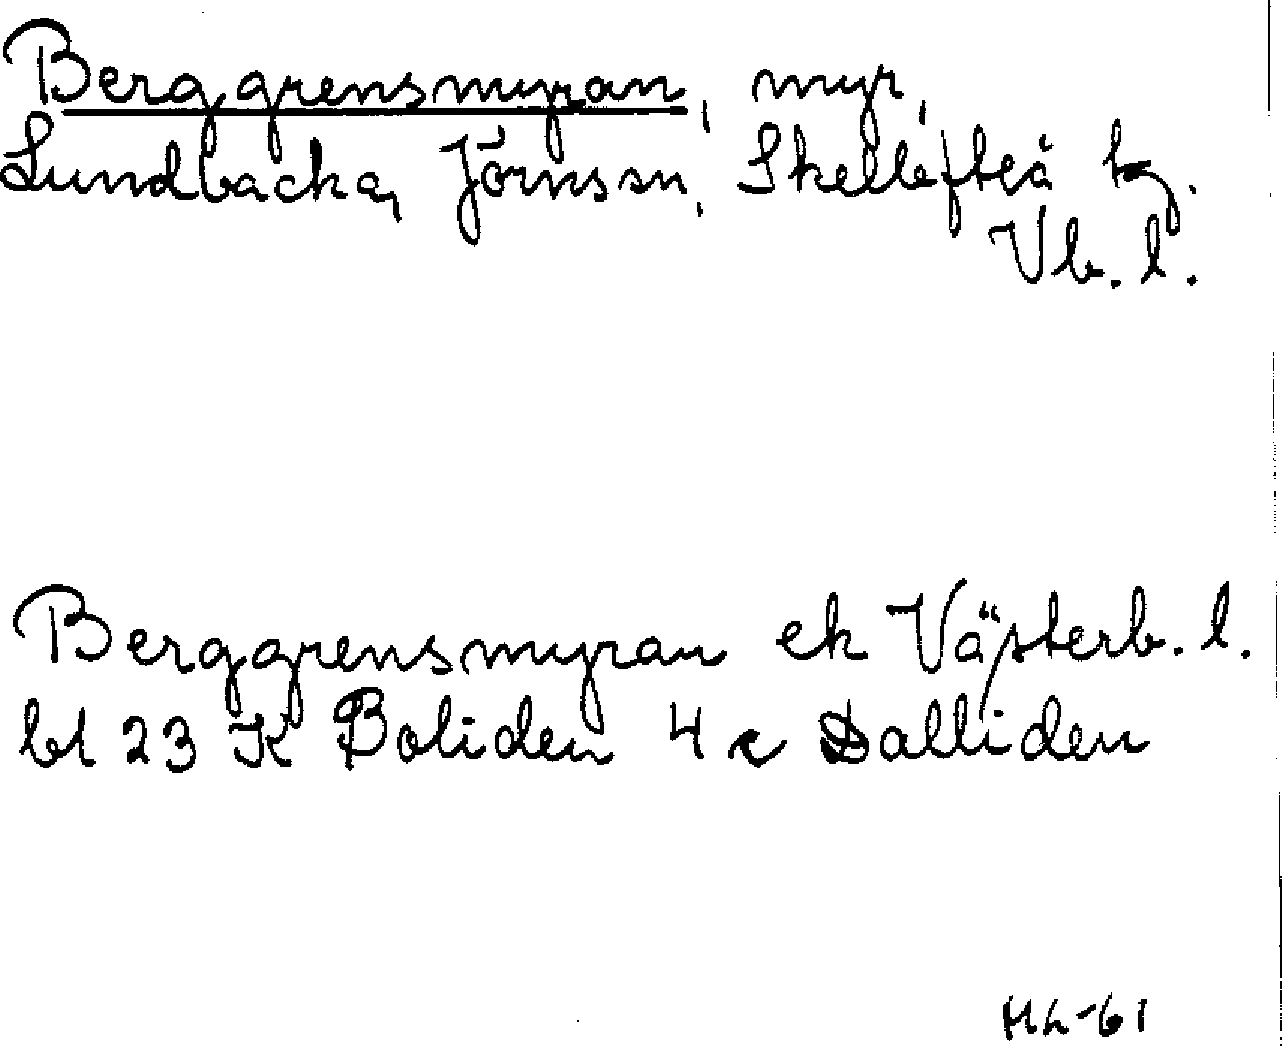 Berggrensmyran, myr,
Lundbacka, Jörns sn, Skellefteå tg.
Vb. l.
Berggrensmyran ek Västerb. l.
bl 23 K Boliden 4 c Dalliden
HL-61